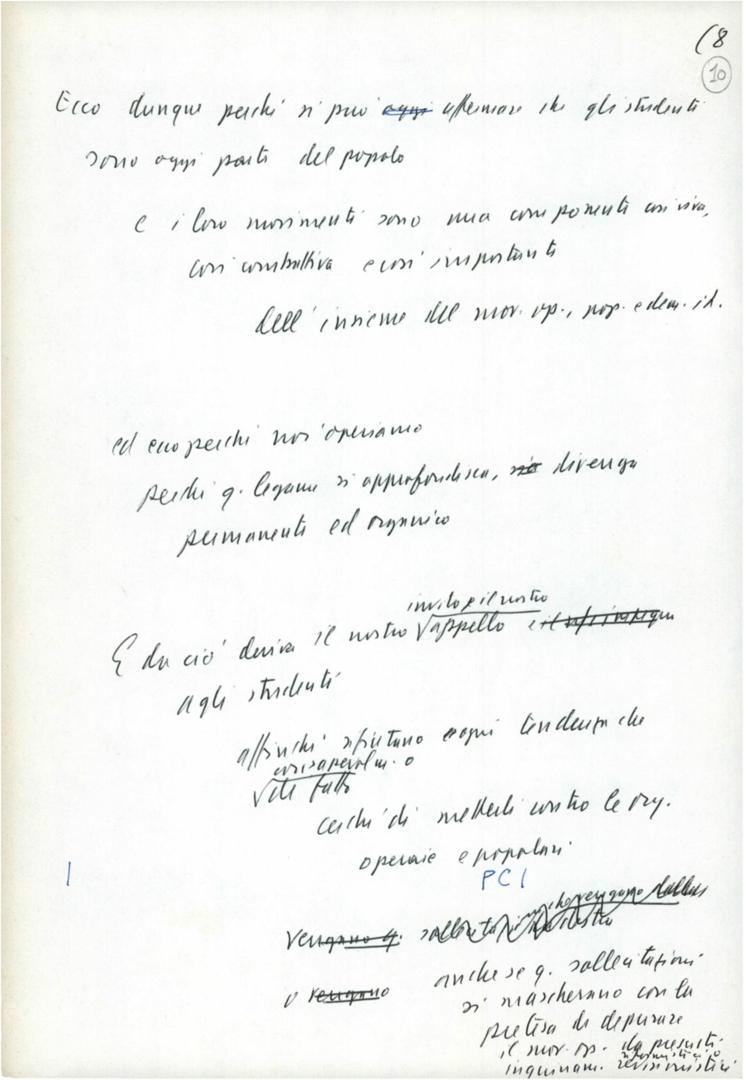 (8
10
Ecco dunque perché si può oggi affermare che gli studenti
sono oggi parte del popolo
e i loro movimenti sono una componente così viva,
così combattiva e così importante
dell'insieme del mov. op., pop. e dem. it.
ed ecco perché noi operiamo
perché q. legame si approfondisca, divenga
permanente ed organico
invito e il nostro
E da ciò deriva il nostro appello e il
agli studenti
affinché rifiutano ogni tendenza che
consapevolm. o
di fatto
cerchi di metterli contro le org.
operaie e popolari
PCI
vengano q.
che vengano dalla
o vengano anche se q. sollecitazioni
si mascherano con la
pretesa di depurare
il mov. op. da presunti
inquinam. revisionistici